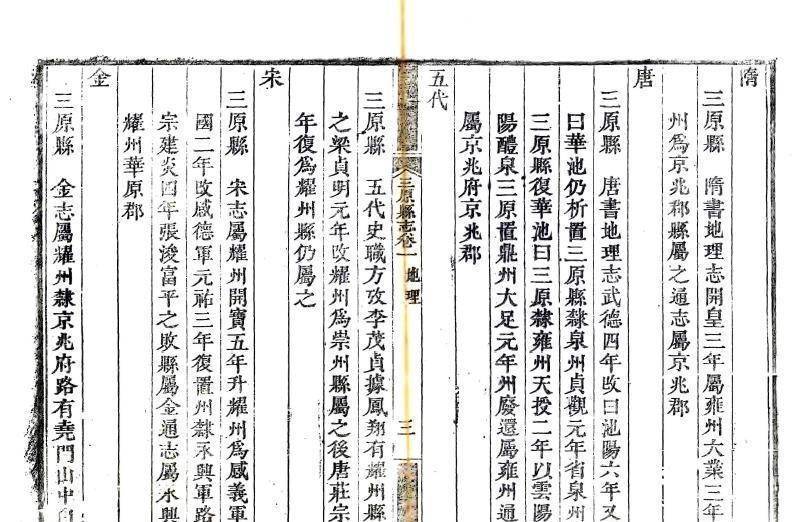 隋
三原縣　隋書地理志開皇三年屬雍州大業三年
州爲京兆郡縣屬之通志屬京兆郡
唐
三原縣　唐書地理志武德四年改曰池陽六年又
曰華池仍析置三原縣隸泉州貞觀元年省泉州
三原縣復華池曰三原隸雍州天授二年以雲陽
陽醴泉三原置鼎州大足元年州廢還屬雍州通
屬京兆府京兆郡
五代
三原縣志卷一　地理　三
三原縣　五代史職方攷李茂貞據鳳翔有耀州
之梁貞明元年改耀州爲崇州縣屬之後唐莊宗
年復爲耀州縣仍屬之
宋
三原縣　宋志屬耀州開寶五年升耀州爲感義軍
國二年改感德軍元祐三年復置州隸永興軍路
宗建炎四年張浚富平之敗縣屬金通志屬永興
耀州華原郡
金
三原縣　金志屬耀州隸京兆府路有堯門山中